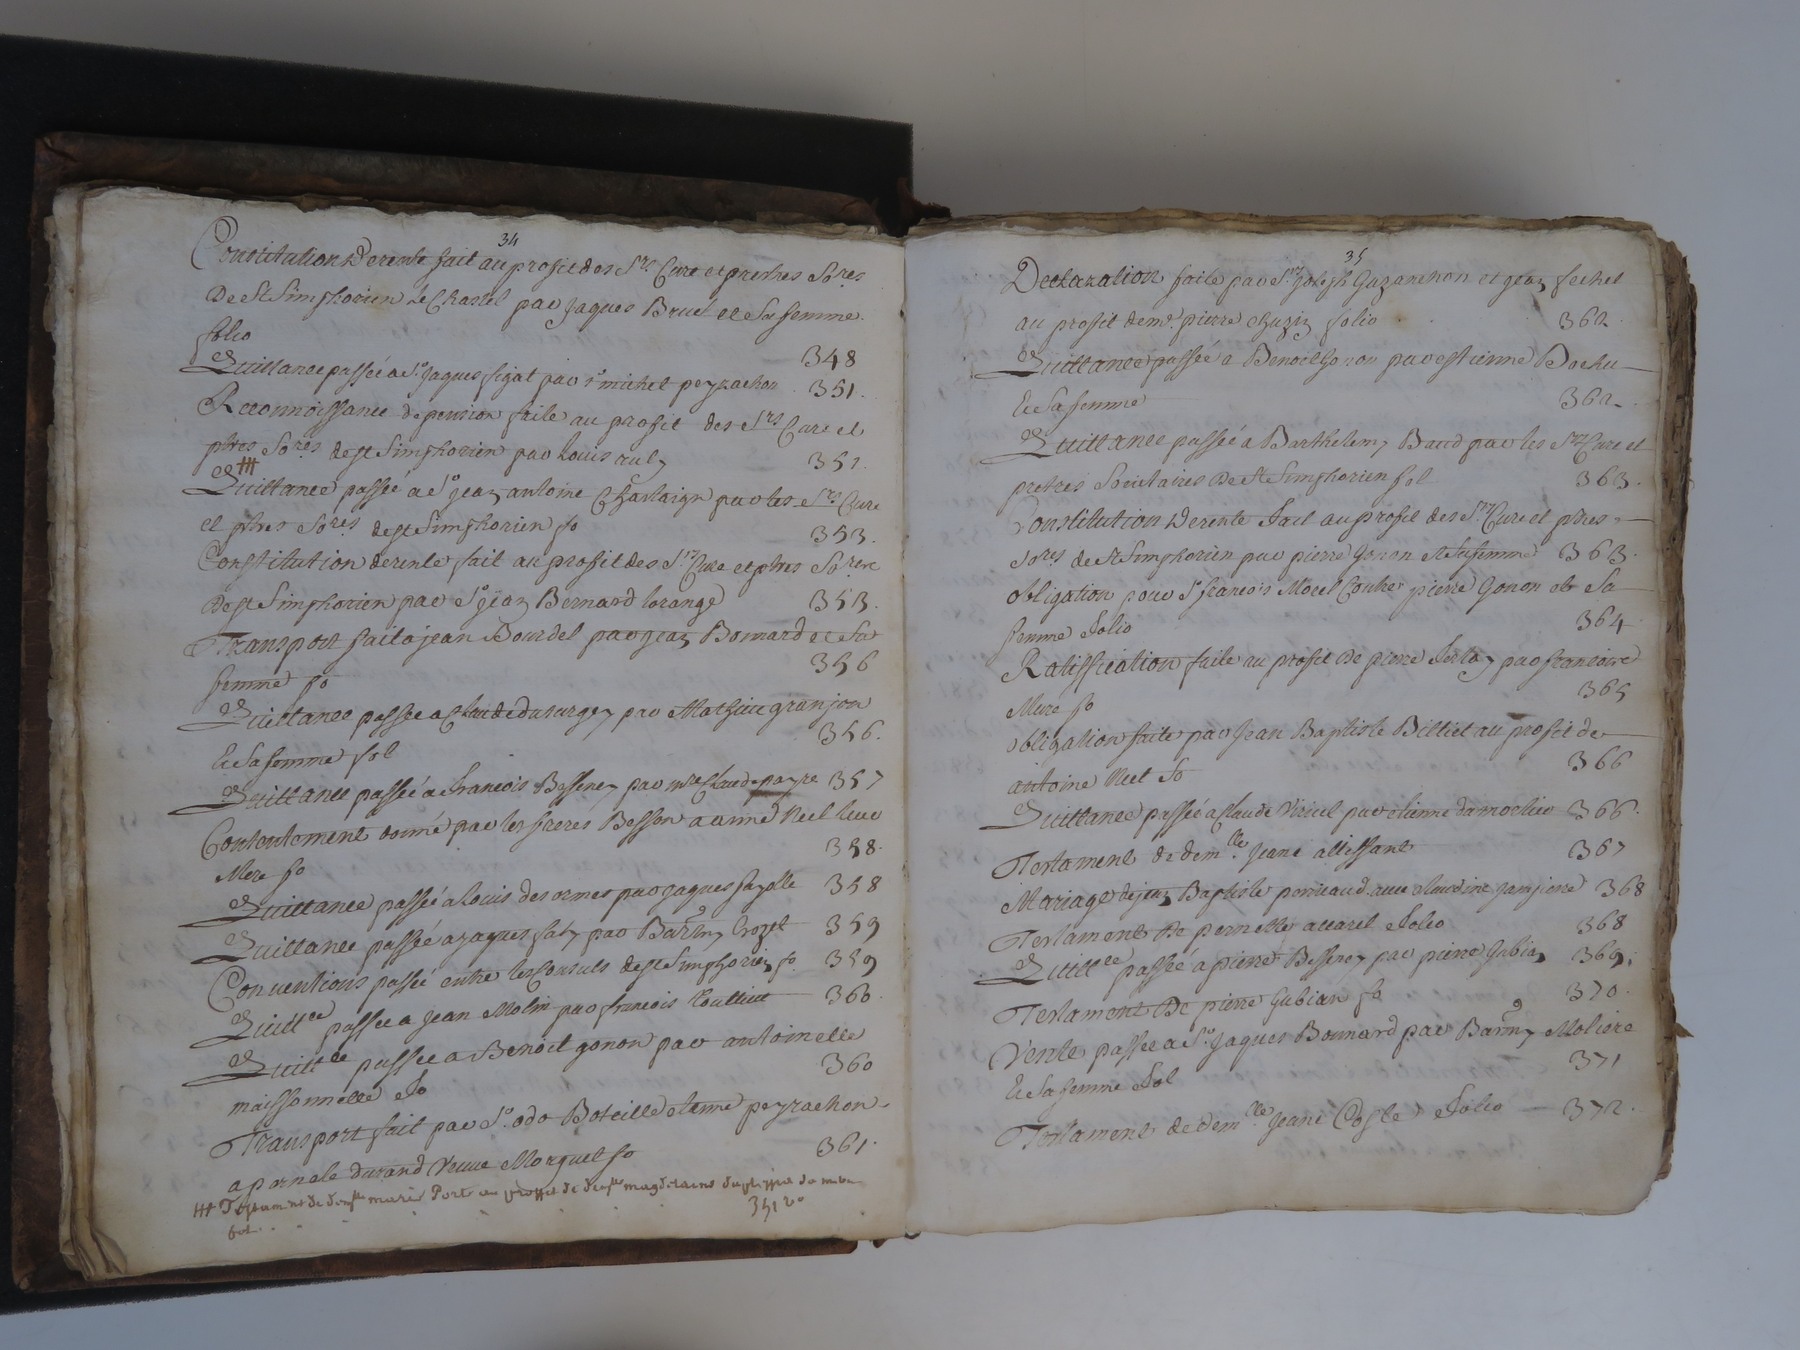 34
Constitution De rente fait au profit des Srs Cure et prestres Sores
De St Simphorien Le Chastel par Jaques Bruel et Sa femme
folio 348
Quittance passée a Sr Jaques figat par Sr michel peyrachon 351.
Reconnoissance de pension faite au profit des Srs Cure et
pbres Sores de st Simphorien par Louis 352.
Quittance passée a Sr Jean antoine Chastaign par les Srs Cure
et pbres Sores de st Simphorien fo 353.
Constitution de rente fait au profit des Srs Cure et pbres
de st Simphorien par Sr Jean Bernard lorange 353.
Transport fait a jean Bourdel par jean Bonnard et Sa
femme fo 356
Quittance passée a Claude dusurgey par Mathieu granjon
Et Sa femme fol 356.
Quittance passée a francois Besseney par Claude payre 357
Contentement donné par les freres Besson a anne Neel leur
Mere fo 358.
Quittance passée a Louis des ormes par Jaques fayolle 358
Quittance passée a jaques faly par Barmy Crozet 359
Conventions passé entre les Consuls de st Simphorien fo 359
Quittce passée a Jean Molin par francois 360.
Quittce passée a Benoit gonon par antoinette
maissonnette fo 360
Transport fait par Sr odo Boteille etienne peyrachon
a pernete durand Veuve Morquet fo 361.
+++ Testament de demlle marie Porte au proffit de demlle magdelaine
fol. 351 vo
35
Declaration faite par Srs Joseph Guzanchon et jean fechet
au profit de mr. pierre Chuzin folio 362
Quittance passée a Benoit Gonon par estienne Bochu
Et Sa femme 362
Quittance passée a Barthelemy Baud par les Srs Cure et
pretres Societaires De St Simphorien fol 363.
Constitution De rente fait au profit des Srs Cure et pbres
Sores de St Simphorien par pierre Gonon et Sa femme 363.
obligation pour Sr francois Morel Contre pierre Gonon et Sa
femme folio 364
Ratiffication faite au profit De pierre par francoise
Mure fo 365
obligation faite par Jean Baptiste Billiet au profit de
antoine Neel fo 366
Quittance passée a Claude Viricel par etienne damochier 366.
Testament de demlle Jeane allissant 367
Mariage de jean Baptiste ponnaud avec Claudine 368
Testament De pernette folio 368
Quittce passée a pierre Besseney par pierre Gubian 369.
Testament De pierre Gubian fo 370.
Vente passée a Sr Jaques Bonnard par Barmy Moliere
Et Sa femme fol 371
Testament de demlle Jeane Coste folio 372.